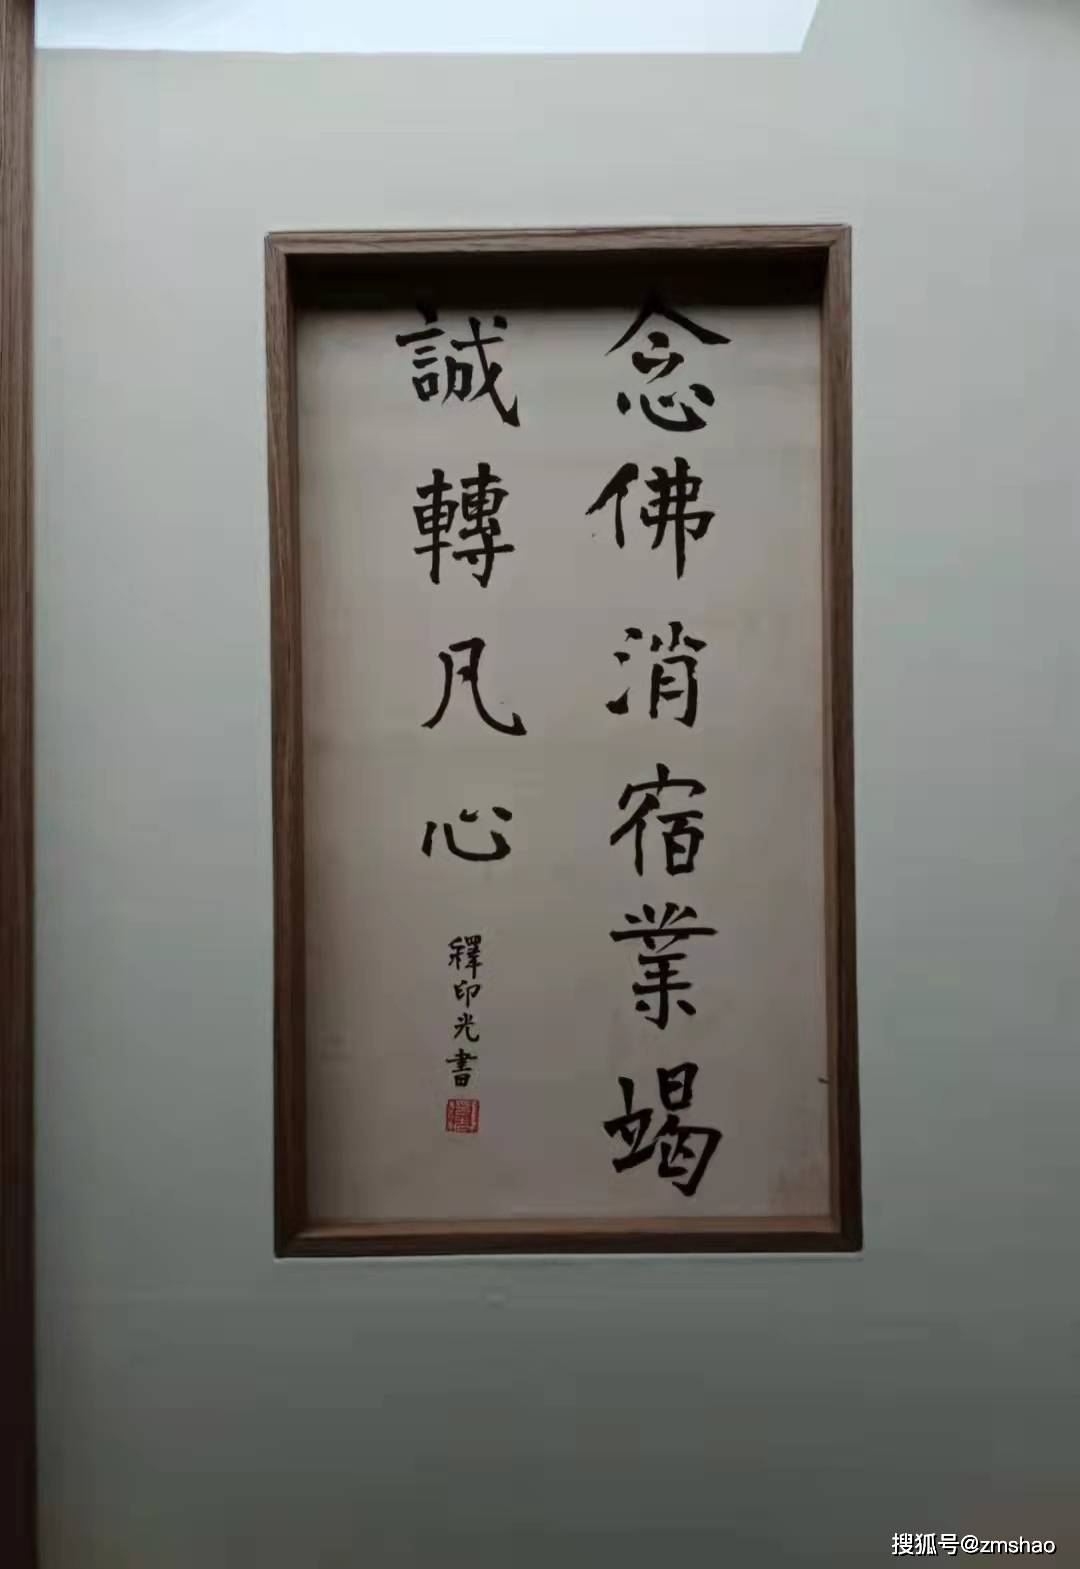 念佛消宿業竭
誠轉凡心
釋印光書
搜狐号@zmshao